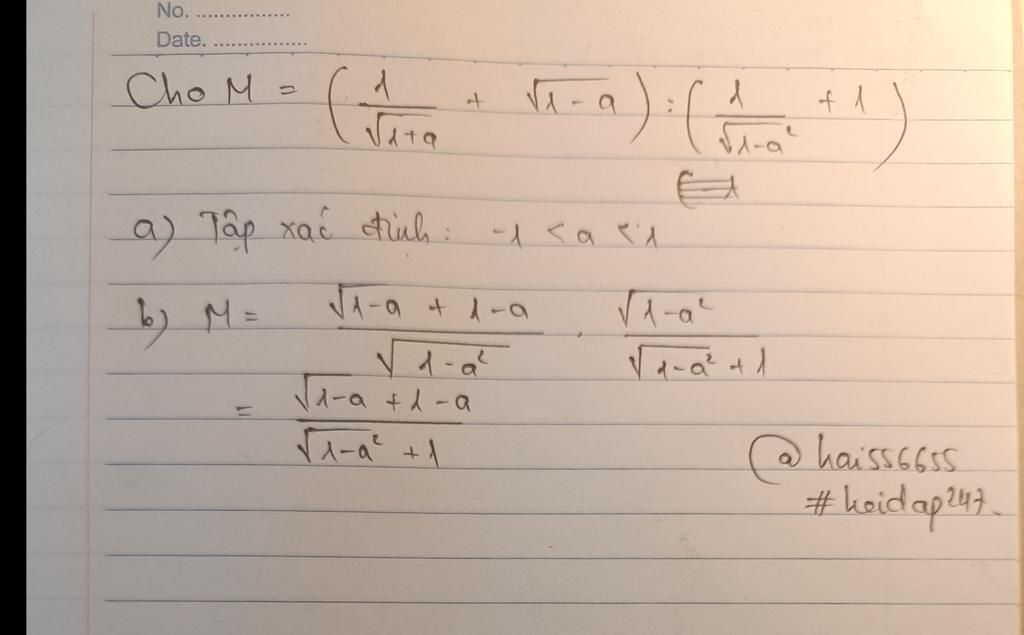 No. ................
Date. ................
Cho M = (1/√(1+a) + √(1-a)) : (1/√(1-a²) + 1)
a) Tập xác định: -1 < a < 1
b) M = (√(1-a) + 1-a)/√(1-a²) · √(1-a²)/(√(1-a²) + 1)
= (√(1-a) + 1-a)/(√(1-a²) + 1)
@hai556655
#hoidap247.